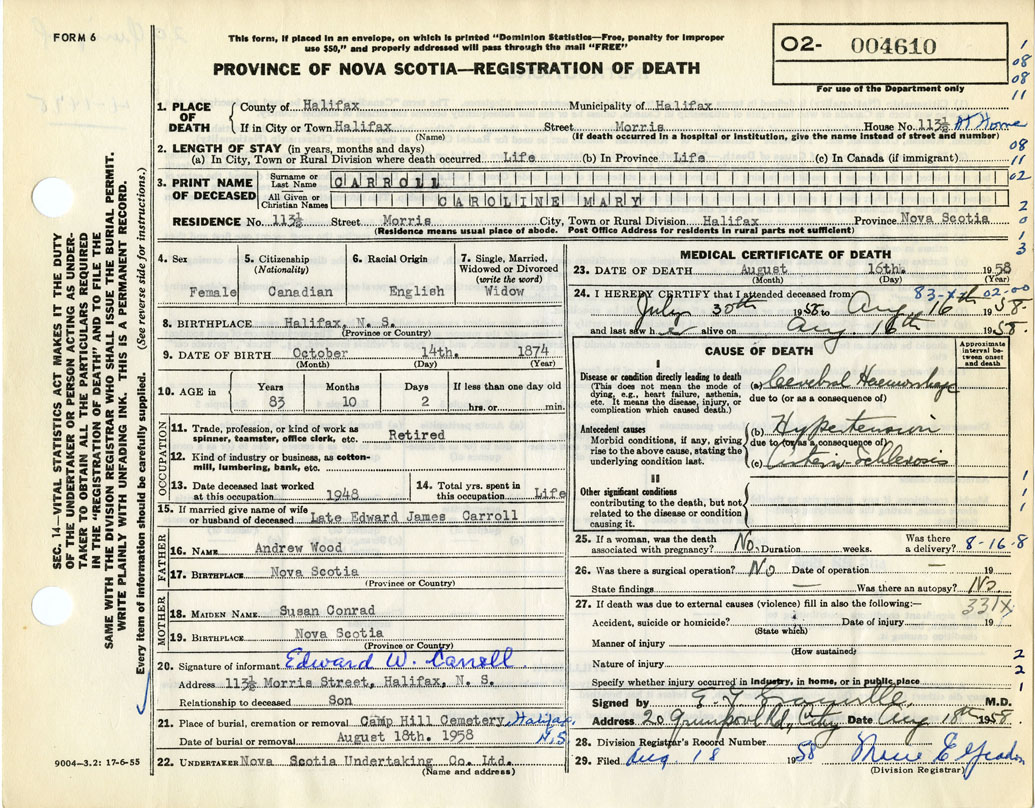 FORM 6
This form, if placed in an envelope, on which is printed "Dominion Statistics—Free, penalty for improper
use $50," and properly addressed will pass through the mail "FREE"
PROVINCE OF NOVA SCOTIA—REGISTRATION OF DEATH
O2- 004610
For use of the Department only
1. PLACE OF DEATH
County of Halifax Municipality of Halifax
If in City or Town Halifax Street Morris House No. 113½ At Home
(Name) (If death occurred in a hospital or institution, give the name instead of street and number)
2. LENGTH OF STAY (in years, months and days)
(a) In City, Town or Rural Division where death occurred Life (b) In Province Life (c) In Canada (if immigrant)
3. PRINT NAME OF DECEASED
Surname or Last Name CARROLL
All Given or Christian Names CAROLINE MARY
RESIDENCE No. 113½ Street Morris City, Town or Rural Division Halifax Province Nova Scotia
(Residence means usual place of abode. Post Office Address for residents in rural parts not sufficient)
4. Sex
Female
5. Citizenship
(Nationality)
Canadian
6. Racial Origin
English
7. Single, Married,
Widowed or Divorced
(write the word)
Widow
8. BIRTHPLACE Halifax, N. S.
(Province or Country)
9. DATE OF BIRTH October 14th. 1874
(Month) (Day) (Year)
10. AGE in
Years Months Days If less than one day old
83 10 2 hrs. or min.
OCCUPATION
11. Trade, profession, or kind of work as
spinner, teamster, office clerk, etc. Retired
12. Kind of industry or business, as cotton-
mill, lumbering, bank, etc.
13. Date deceased last worked
at this occupation 1948
14. Total yrs. spent in
this occupation Life
15. If married give name of wife
or husband of deceased Late Edward James Carroll
FATHER
16. NAME Andrew Wood
17. BIRTHPLACE Nova Scotia
(Province or Country)
MOTHER
18. MAIDEN NAME Susan Conrad
19. BIRTHPLACE Nova Scotia
(Province or Country)
20. Signature of informant Edward W. Carroll
Address 113½ Morris Street, Halifax, N. S.
Relationship to deceased Son
21. Place of burial, cremation or removal Camp Hill Cemetery, Halifax
Date of burial or removal August 18th. 1958 N.S.
22. UNDERTAKER Nova Scotia Undertaking Co. Ltd.
(Name and address)
9004-3.2: 17-6-55
MEDICAL CERTIFICATE OF DEATH
23. DATE OF DEATH August 16th. 1958
(Year)
83-x 02-00
24. I HEREBY CERTIFY that I attended deceased from:
July 30th 1958 to Aug 16th 1958
and last saw her alive on Aug. 16th 1958
CAUSE OF DEATH
Approximate
interval be-
tween onset
and death
I
Disease or condition directly leading to death
(This does not mean the mode of
dying, e.g., heart failure, asthenia,
etc. It means the disease, injury, or
complication which caused death.)
(a) Cerebral Haemorrhage
due to (or as a consequence of)
Antecedent causes
Morbid conditions, if any, giving
rise to the above cause, stating the
underlying condition last.
(b) Hypertension
due to (or as a consequence of)
(c) Arterio-Sclerosis
II
Other significant conditions
contributing to the death, but not
related to the disease or condition
causing it.
25. If a woman, was the death
associated with pregnancy? No. Duration weeks. Was there
a delivery? 8-16-8
26. Was there a surgical operation? No Date of operation — 19
State findings — Was there an autopsy? No.
27. If death was due to external causes (violence) fill in also the following:—
331X
Accident, suicide or homicide? Date of injury 19
(State which)
Manner of injury
(How sustained)
Nature of injury
Specify whether injury occurred in industry, in home, or in public place
Signed by M.D.
Address 20 Rd., City Date Aug 18th 1958.
28. Division Registrar's Record Number
29. Filed Aug. 18 1958
(Division Registrar)
SEC. 14—VITAL STATISTICS ACT MAKES IT THE DUTY
OF THE UNDERTAKER OR PERSON ACTING AS UNDER-
TAKER TO OBTAIN ALL THE PARTICULARS REQUIRED
IN THE "REGISTRATION OF DEATH" AND TO FILE THE
SAME WITH THE DIVISION REGISTRAR WHO SHALL ISSUE THE BURIAL PERMIT.
WRITE PLAINLY WITH UNFADING INK. THIS IS A PERMANENT RECORD.
Every item of information should be carefully supplied. (See reverse side for instructions.)
1
08
08
11
08
11
02
2
0
1
3
1
1
1
2
2
1